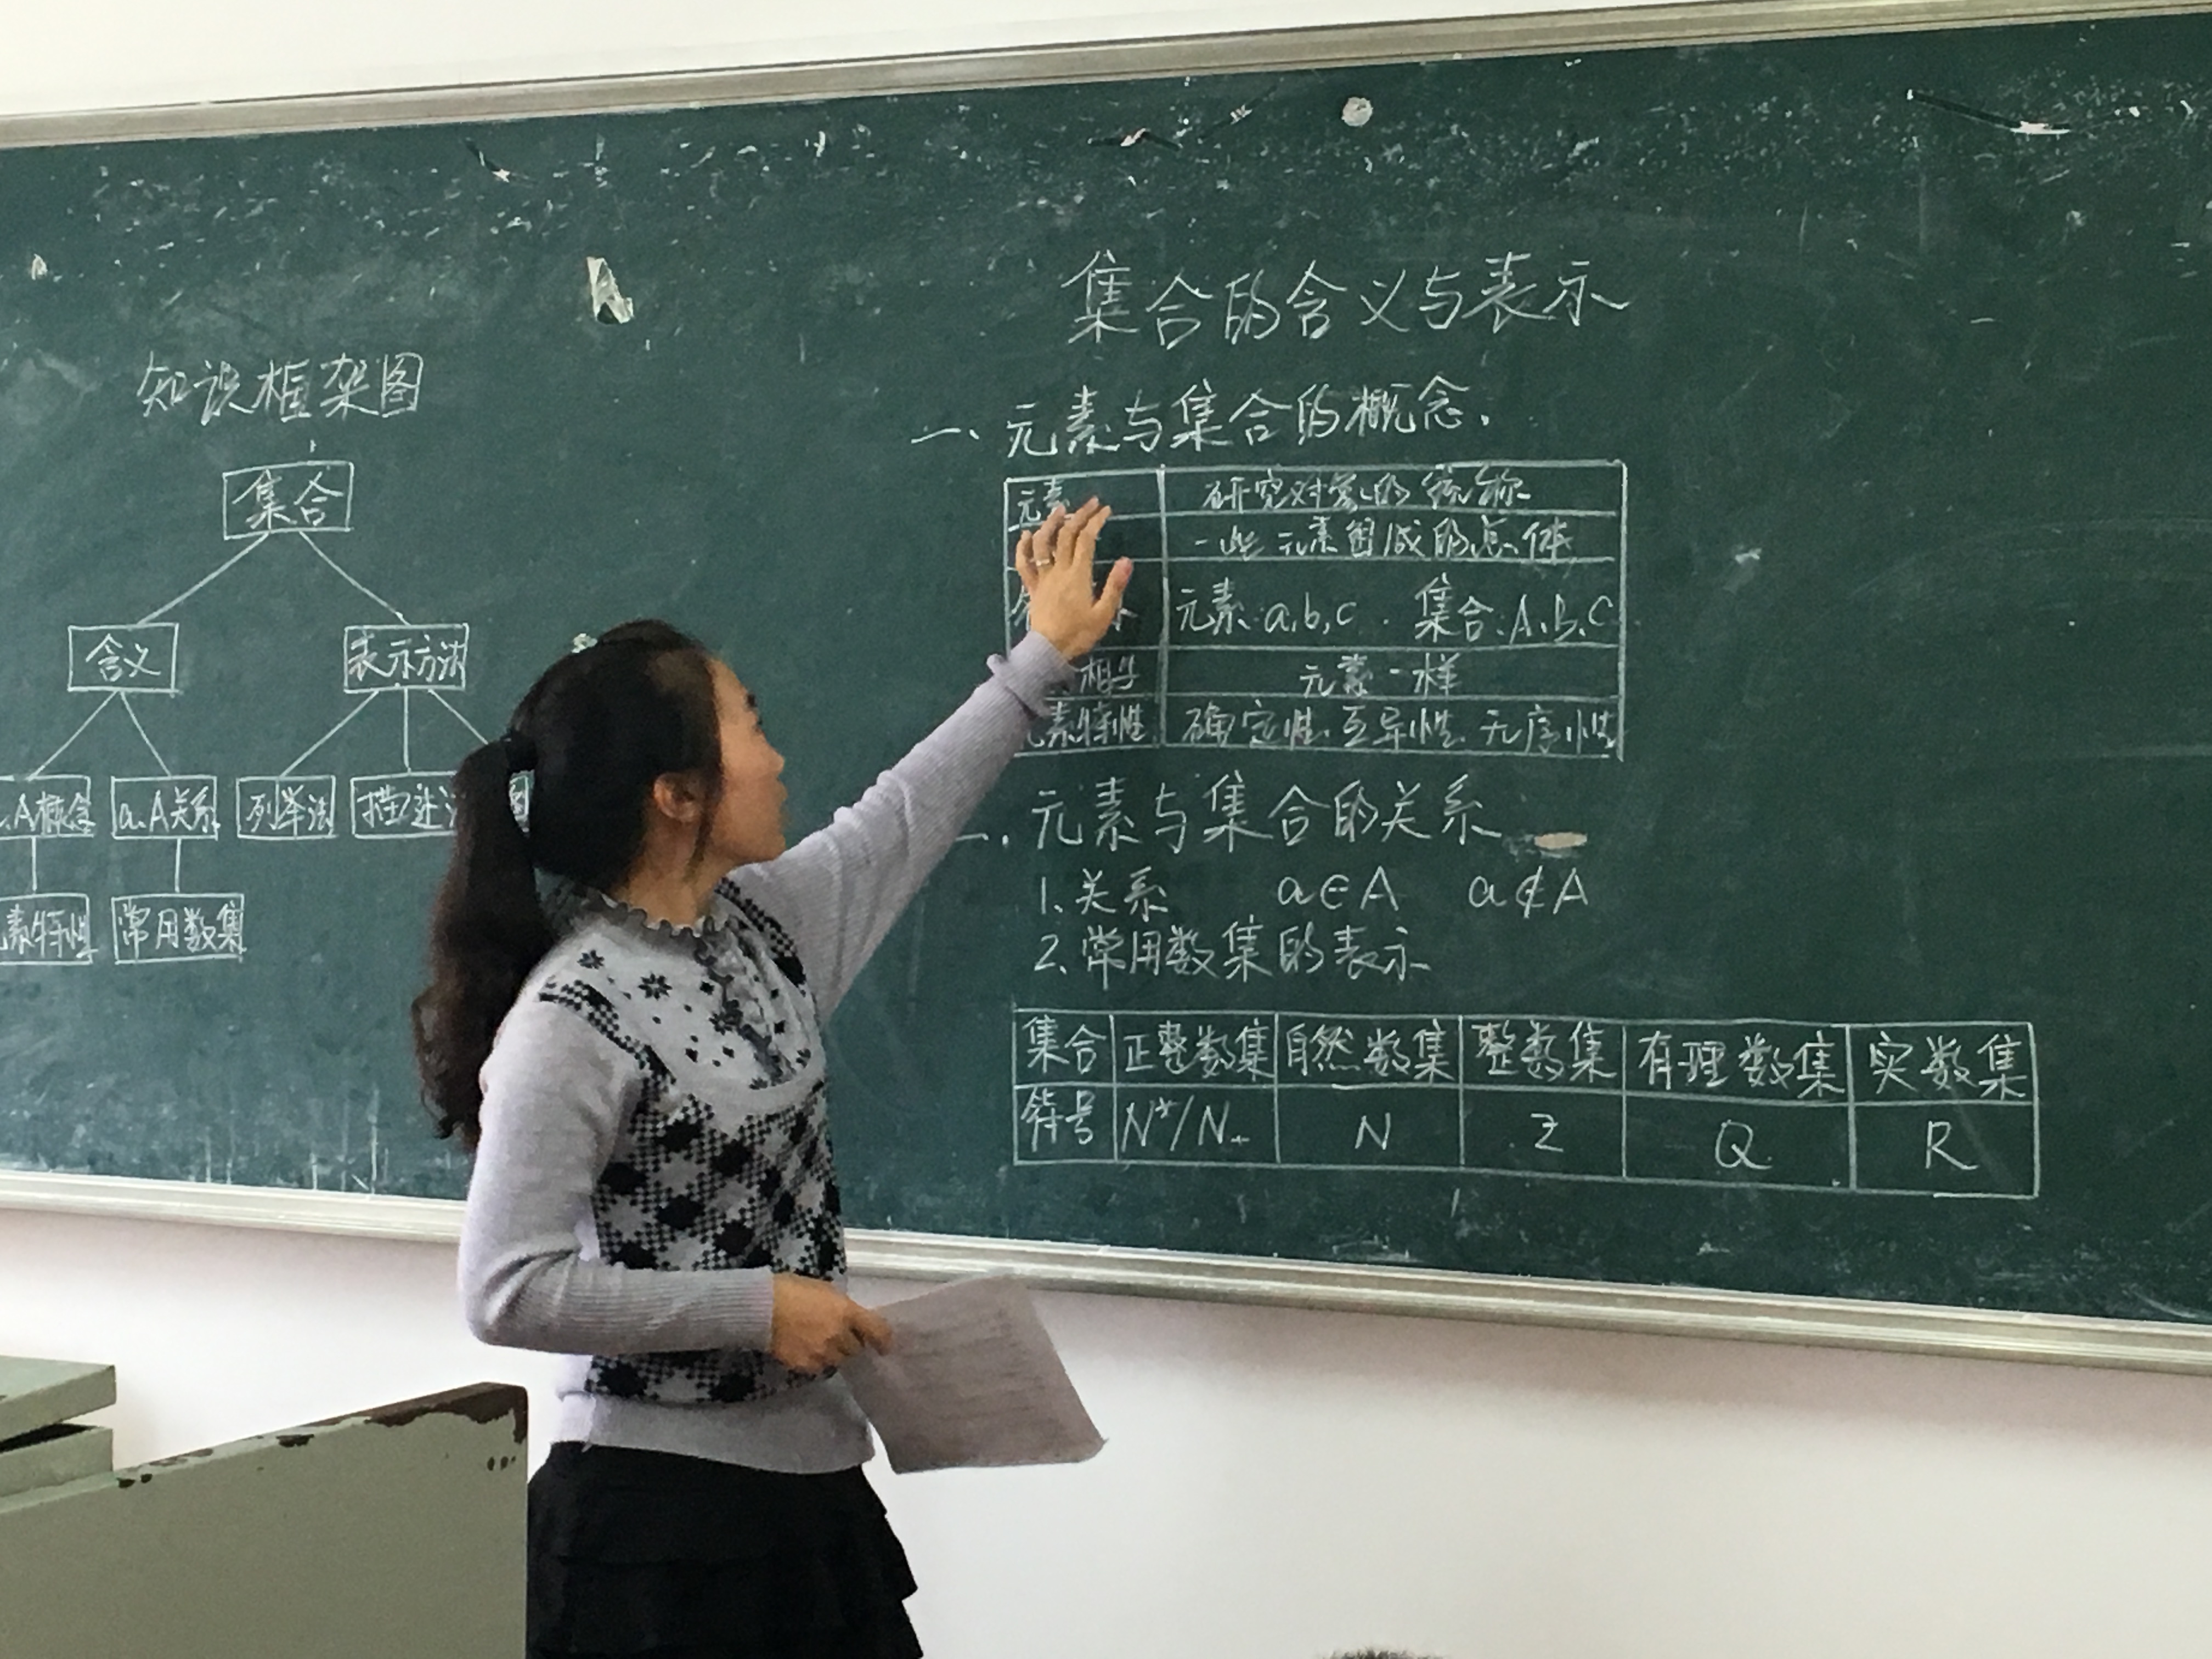 知识框架图
集合
含义 表示方法
A概念 a.A关系 列举法 描述
素特性 常用数集
集合的含义与表示
一、元素与集合的概念.
元素 研究对象的统称
一些元素组成的总体
元素:a,b,c. 集合:A.B.C
相等 元素一样
素特性 确定性 互异性 无序性
元素与集合的关系
1.关系 a∈A a∉A
2.常用数集的表示
集合 正整数集 自然数集 整数集 有理数集 实数集
符号 N*/N+ N Z Q R